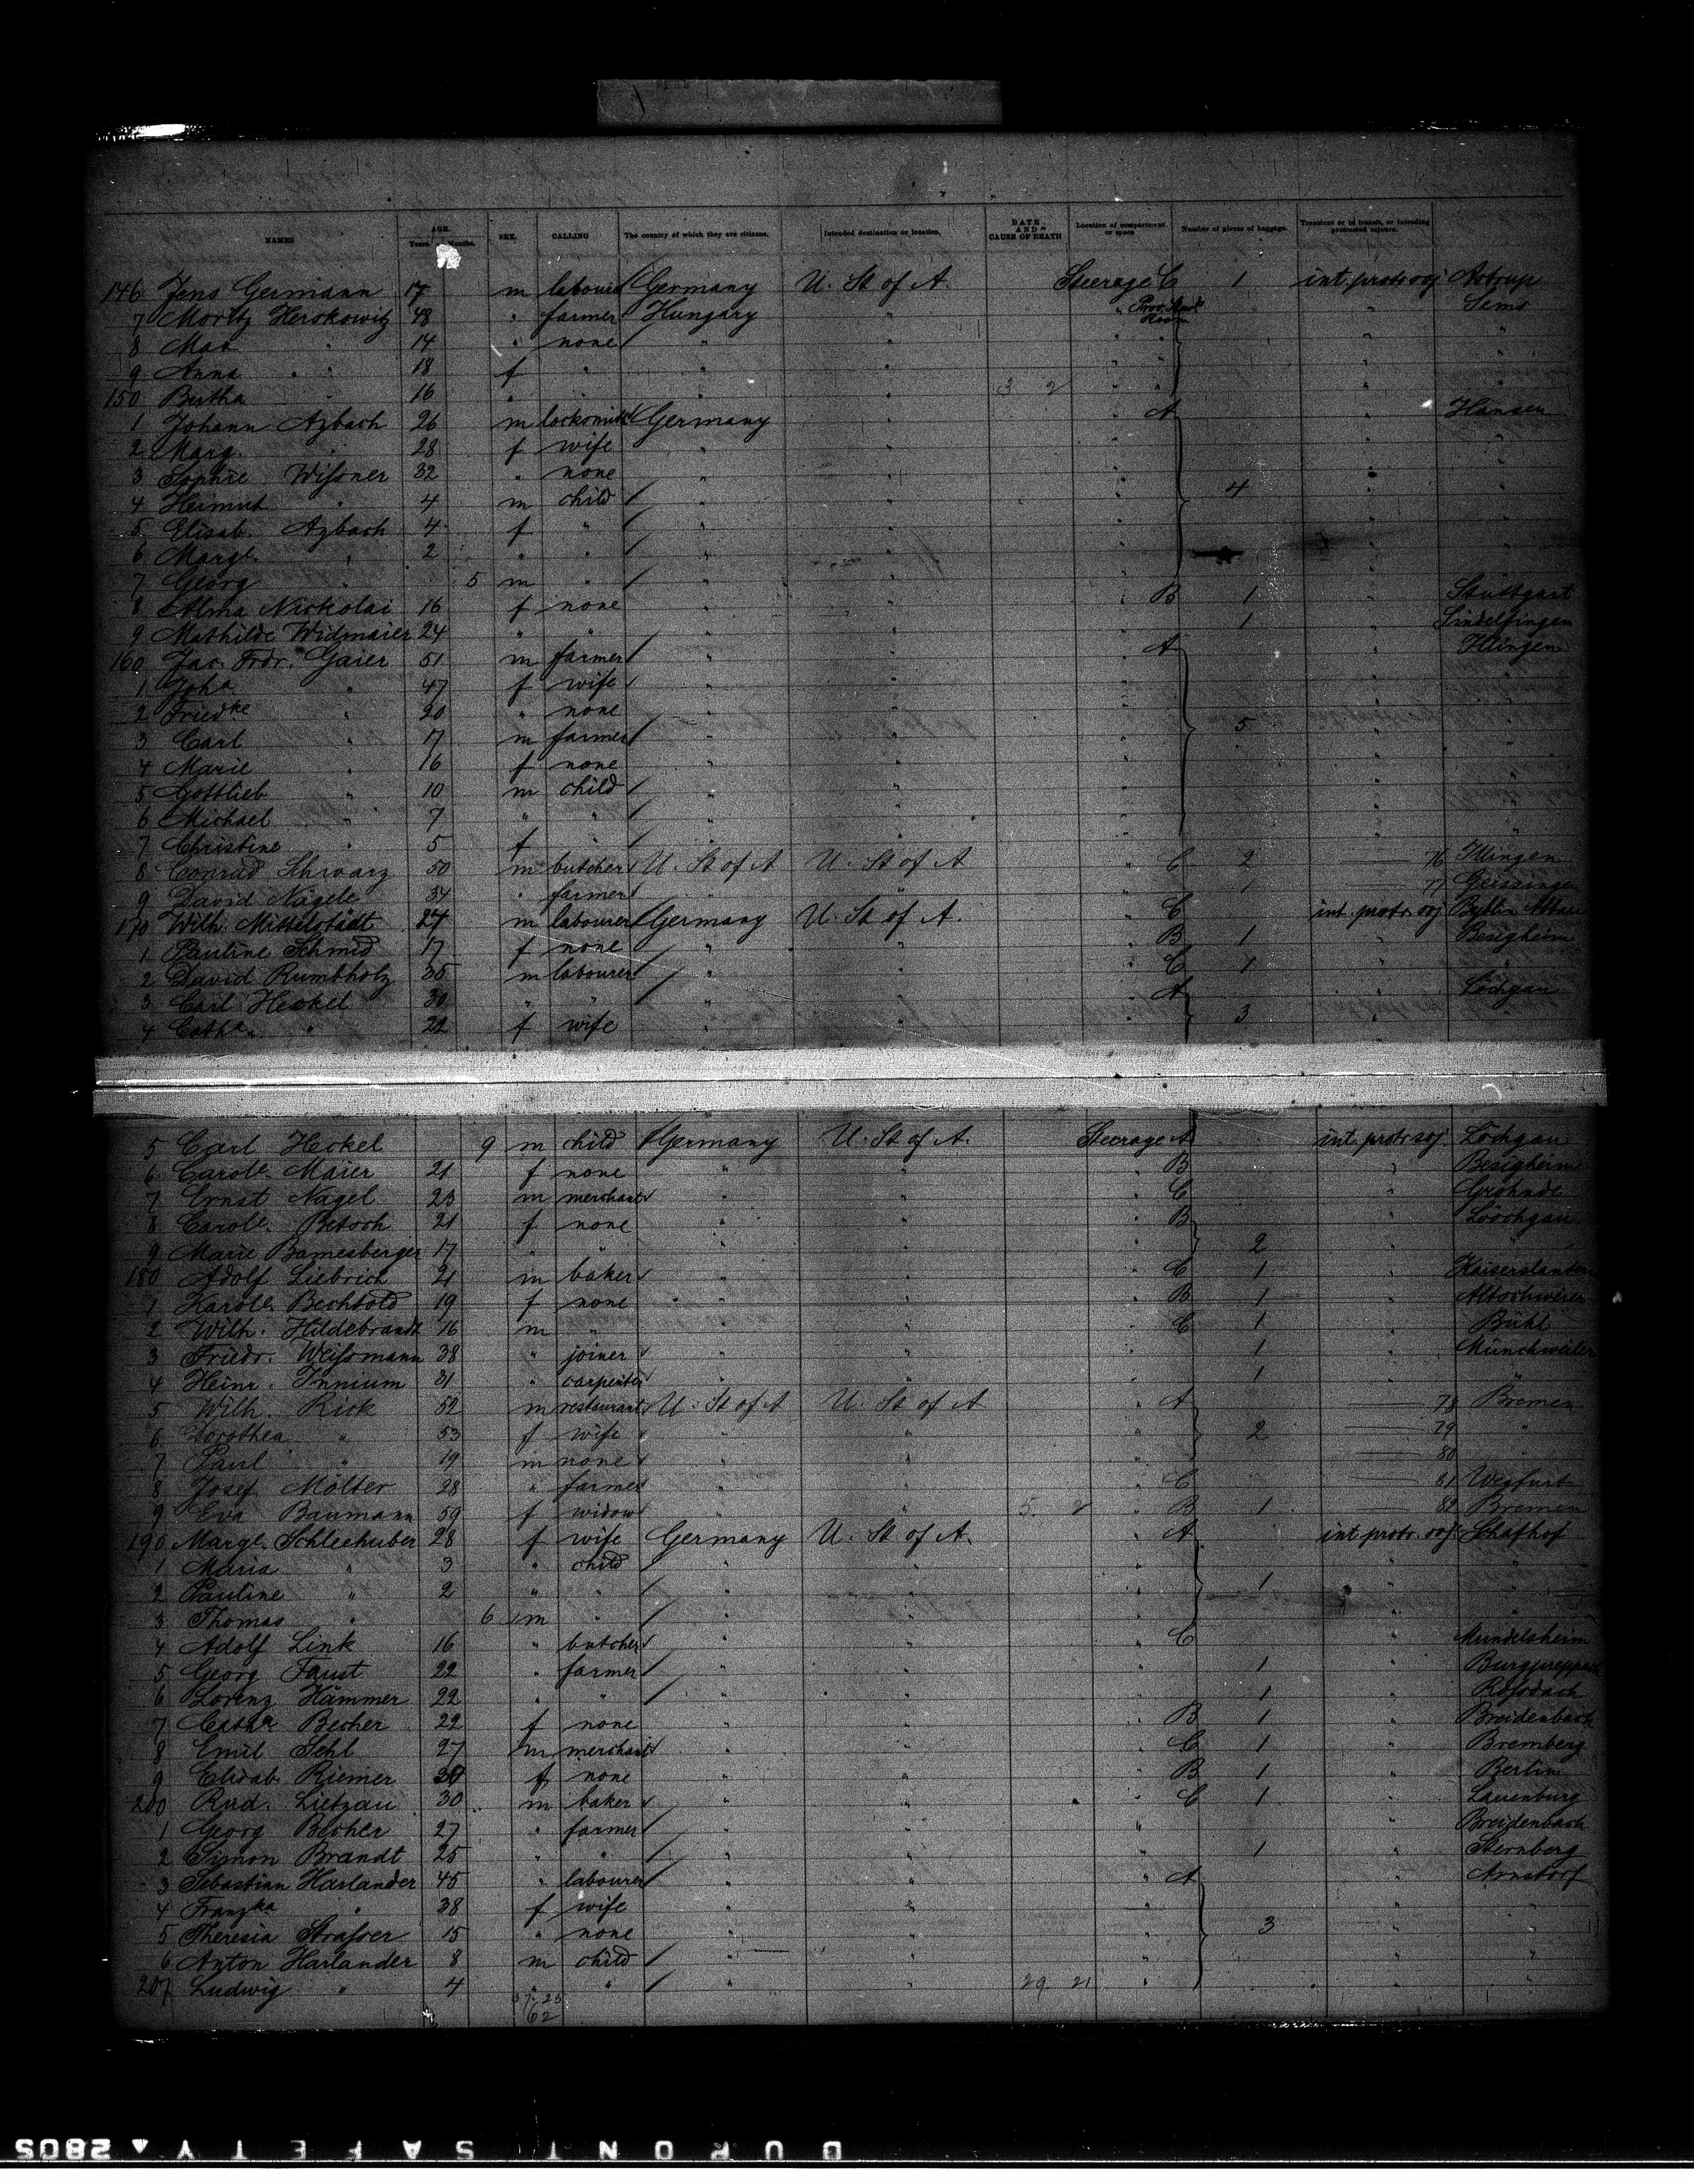 NAMES AGE. Years. Months. SEX. CALLING The country of which they are citizens. Intended destination or location. DATE AND CAUSE OF DEATH Location of compartment or space Number of pieces of baggage. Transient or in transit, or intending protracted sojourn.
146 Jens Germann 17 m labourer Germany U. St of A. Steerage C 1 int. protr soj Astrup
7 Moritz Herskowitz 48 " farmer Hungary " " " Sems
8 Max " 14 " none " " " " " "
9 Anna " " 18 f " " " " " " "
150 Bertha " 16 " " " " 3 2 " " " "
1 Johann Azbach 26 m locksmith Germany " " A " Hansen
2 Marg. " 28 f wife " " " " "
3 Sophie Wißner 32 " none " " " " "
4 Heinrich " 4 m child " " " 4 " "
5 Elisab. Azbach 4 f " " " " " "
6 Margt. " 2 " " " " " " "
7 Georg " 5 m " " " " " "
8 Alma Nickolai 16 f none " " " B 1 " Stuttgart
9 Mathilde Widmaier 24 " " " " " " 1 " Sindelfingen
160 Jac. Frdr. Gaier 51 m farmer " " " A " Illingen
1 Joha " 47 f wife " " " " "
2 Friedke " 20 " none " " " " "
3 Carl " 17 m farmer " " " 5 " "
4 Marie " 16 f none " " " " "
5 Gottlieb " 10 m child " " " " "
6 Michael " 7 " " " " " " "
7 Christine " 5 f " " " " " "
8 Conrad Schwarz 50 m butcher U. St of A U. St of A " C 2 — 76 Illingen
9 David Nägele 34 " farmer " " " " 1 — 77 Geissingen
170 Wilh. Mittelstädt 24 m labourer Germany U. St of A. " C int. protr. soj
1 Pauline Schmid 17 f none " " " B 1 " Besigheim
2 David Rumbholz 35 m labourer " " " C 1 " "
3 Carl Heckel 30 " " " " " A " Löchgau
4 Catha. " 22 f wife " " " 3 " "
5 Carl Heckel 9 m child Germany U. St of A. Steerage A int. protr soj. Löchgau
6 Carole. Maier 21 f none " " " B " Besigheim
7 Ernst Nagel 23 m merchant " " " C " Grohnde
8 Carole. Betsch 21 f none " " " B " Löchgau
9 Marie Bamesberger 17 " " " " " 2 " "
180 Adolf Liebrich 21 m baker " " " C 1 " Kaiserslautern
1 Karole. Bechtold 19 f none " " " B 1 "
2 Wilh. Hildebrandt 16 m " " " " C 1 " Bühl
3 Friedr. Weißmann 38 " joiner " " " " 1 " Münchweiler
4 Heinr. Innium 31 " carpenter " " " " 1 " "
5 Wilh. Rick 52 m restaurant U. St of A U. St of A " A — 78 Bremen
6 Dorothea " 53 f wife " " " 2 — 79 "
7 Paul " 19 m none " " " — 80 "
8 Josef Mölter 28 " farmer " " " C — 81 Wegfurt
9 Eva Baumann 59 f widow " " 5. 2 " B 1 — 82 Bremen
190 Margt. Schleehuber 28 f wife Germany U. St of A. " A int protr. soj. Schafhof
1 Maria " 3 " child " " " " "
2 Pauline " 2 " " " " " 1 " "
3 Thomas " 6 m " " " " " "
4 Adolf Link 16 " butcher " " " C " Mundelsheim
5 Georg Faust 22 " farmer " " " " 1 " Burgpreppach
6 Lorenz Hämmer 22 " " " " " " 1 " Roßdach
7 Cathr Becher 22 f none " " " B 1 " Breidenbach
8 Emil Sehl 27 m merchant " " " C 1 " Bremberg
9 Elisab. Riemer 30 f none " " " B 1 " Berlin
200 Rud. Lietzau 30 m baker " " " C 1 " Lauenburg
1 Georg Becher 27 " farmer " " " " " Breidenbach
2 Simon Brandt 25 " " " " " " 1 " Sternberg
3 Sebastian Harlander 45 " labourer " " " A " Arnstorf
4 Franzka " 38 f wife " " " " "
5 Theresia Straßer 15 " none " " " 3 " "
6 Anton Harlander 8 m child " " " " "
207 Ludwig " 4 " " " " 29 21 " " "
37. 25
62
DUPONT SAFETY 2805